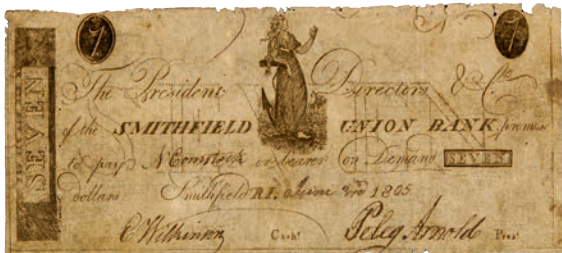 7 7
SEVEN
The President Directors & Co.
of the SMITHFIELD UNION BANK promise
to pay N Comstock or bearer on Demand SEVEN
dollars Smithfield R.I. June 3rd 1805
C Wilkinson Cash.r Peleg Arnold Pres.t